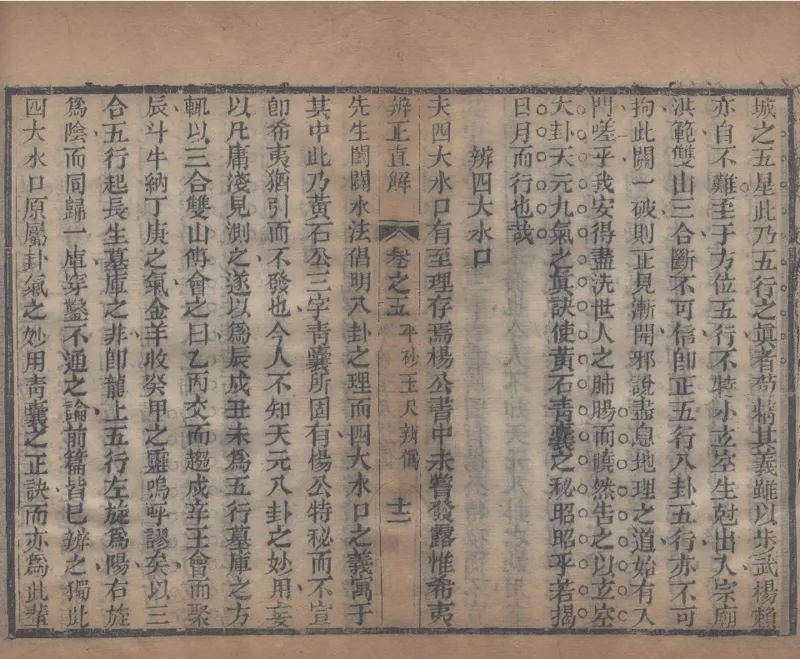 城之五星此乃五行之眞者苟精其義雖以步武楊賴
亦自不難至于方位五行不特小玄空生尅出入宗廟
洪範雙山三合斷不可信卽正五行八卦五行亦不可
拘此關一破則正見漸開邪說盡息地理之道始有入
門嗟乎我安得盡洗世人之肺腸而曉然告之以玄空
大卦天元九氣之眞訣使黃石靑囊之秘昭昭乎若揭
日月而行也哉
辨四大水口
夫四大水口有至理存焉楊公書中未嘗發露惟希夷
辨正直解 卷之五 平砂玉尺辨僞 十二
先生闔闢水法倡明八卦之理而四大水口之義寓于
其中此乃黃石公三字靑囊所固有楊公特秘而不宣
卽希夷猶引而不發也今人不知天元八卦之妙用妄
以凡庸淺見測之遂以爲辰戌丑未爲五行墓庫之方
輒以三合雙山傅會之曰乙丙交而趨戌辛壬會而聚
辰斗牛納丁庚之氣金羊收癸甲之靈嗚呼謬矣以三
合五行起長生墓庫之非卽龍上五行左旋爲陽右旋
爲陰而同歸一庫穿鑿不通之論前篇皆巳辨之獨此
四大水口原屬卦氣之妙用靑囊之正訣而亦爲此輩